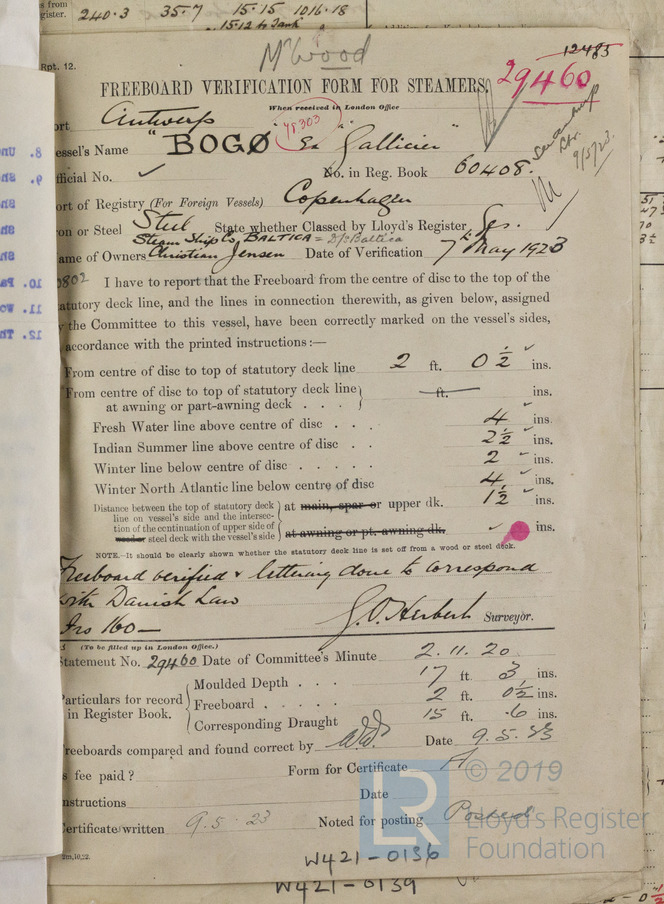 s from
gister.
240.3 35.7 15.15 1016.18
15.12 to Tank
Rpt. 12.
McWood
12485
FREEBOARD VERIFICATION FORM FOR STEAMERS.
29460
When received in London Office
ort Antwerp
78303
essel's Name "BOGØ" Ex "Gallicier"
fficial No. ✓ No. in Reg. Book 60408.
9/5/23
ort of Registry (For Foreign Vessels) Copenhagen
on or Steel Steel State whether Classed by Lloyd's Register, Yes.
Steam Ship Co. BALTICA = D/S Baltica
ame of Owners Christian Jensen Date of Verification 7th May 1923
I have to report that the Freeboard from the centre of disc to the top of the
atutory deck line, and the lines in connection therewith, as given below, assigned
y the Committee to this vessel, have been correctly marked on the vessel's sides,
accordance with the printed instructions:—
From centre of disc to top of statutory deck line 2 ft. 0 ½ ins.
From centre of disc to top of statutory deck line
at awning or part-awning deck . . . ft. ins.
Fresh Water line above centre of disc . . . 4 ins.
Indian Summer line above centre of disc . . 2½ ins.
Winter line below centre of disc . . . . . 2 ins.
Winter North Atlantic line below centre of disc 4 ins.
Distance between the top of statutory deck
line on vessel's side and the intersec-
tion of the continuation of upper side of
wood or steel deck with the vessel's side
at main, spar or upper dk. 1½ ins.
at awning or pt. awning dk. ✓ ins.
NOTE.—It should be clearly shown whether the statutory deck line is set off from a wood or steel deck.
Freeboard verified & lettering done to correspond
with Danish Law
Frs 160—
G.O. Herbert Surveyor.
(To be filled up in London Office.)
Statement No. 29460 Date of Committee's Minute 2.11.20
Particulars for record
in Register Book.
Moulded Depth . . . 17 ft. 3 ins.
Freeboard . . . . . 2 ft. 0½ ins.
Corresponding Draught 15 ft. .6 ins.
reeboards compared and found correct by Date 9.5.23
s fee paid ? Form for Certificate A
nstructions Date
Certificate written 9.5.23 Noted for posting Posted
2m,10,22.
W421-0136
W421-0139
© 2019
Lloyd's Register
Foundation
LR